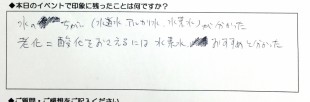 ◆本日のイベントで印象に残ったことは何ですか?
水の ちがい(水道水 アルカリ水、水素水)が分かった
老化=酸化をおさえるには 水素水 おすすめと分かった
◆ご質問・ご感想をご記入ください